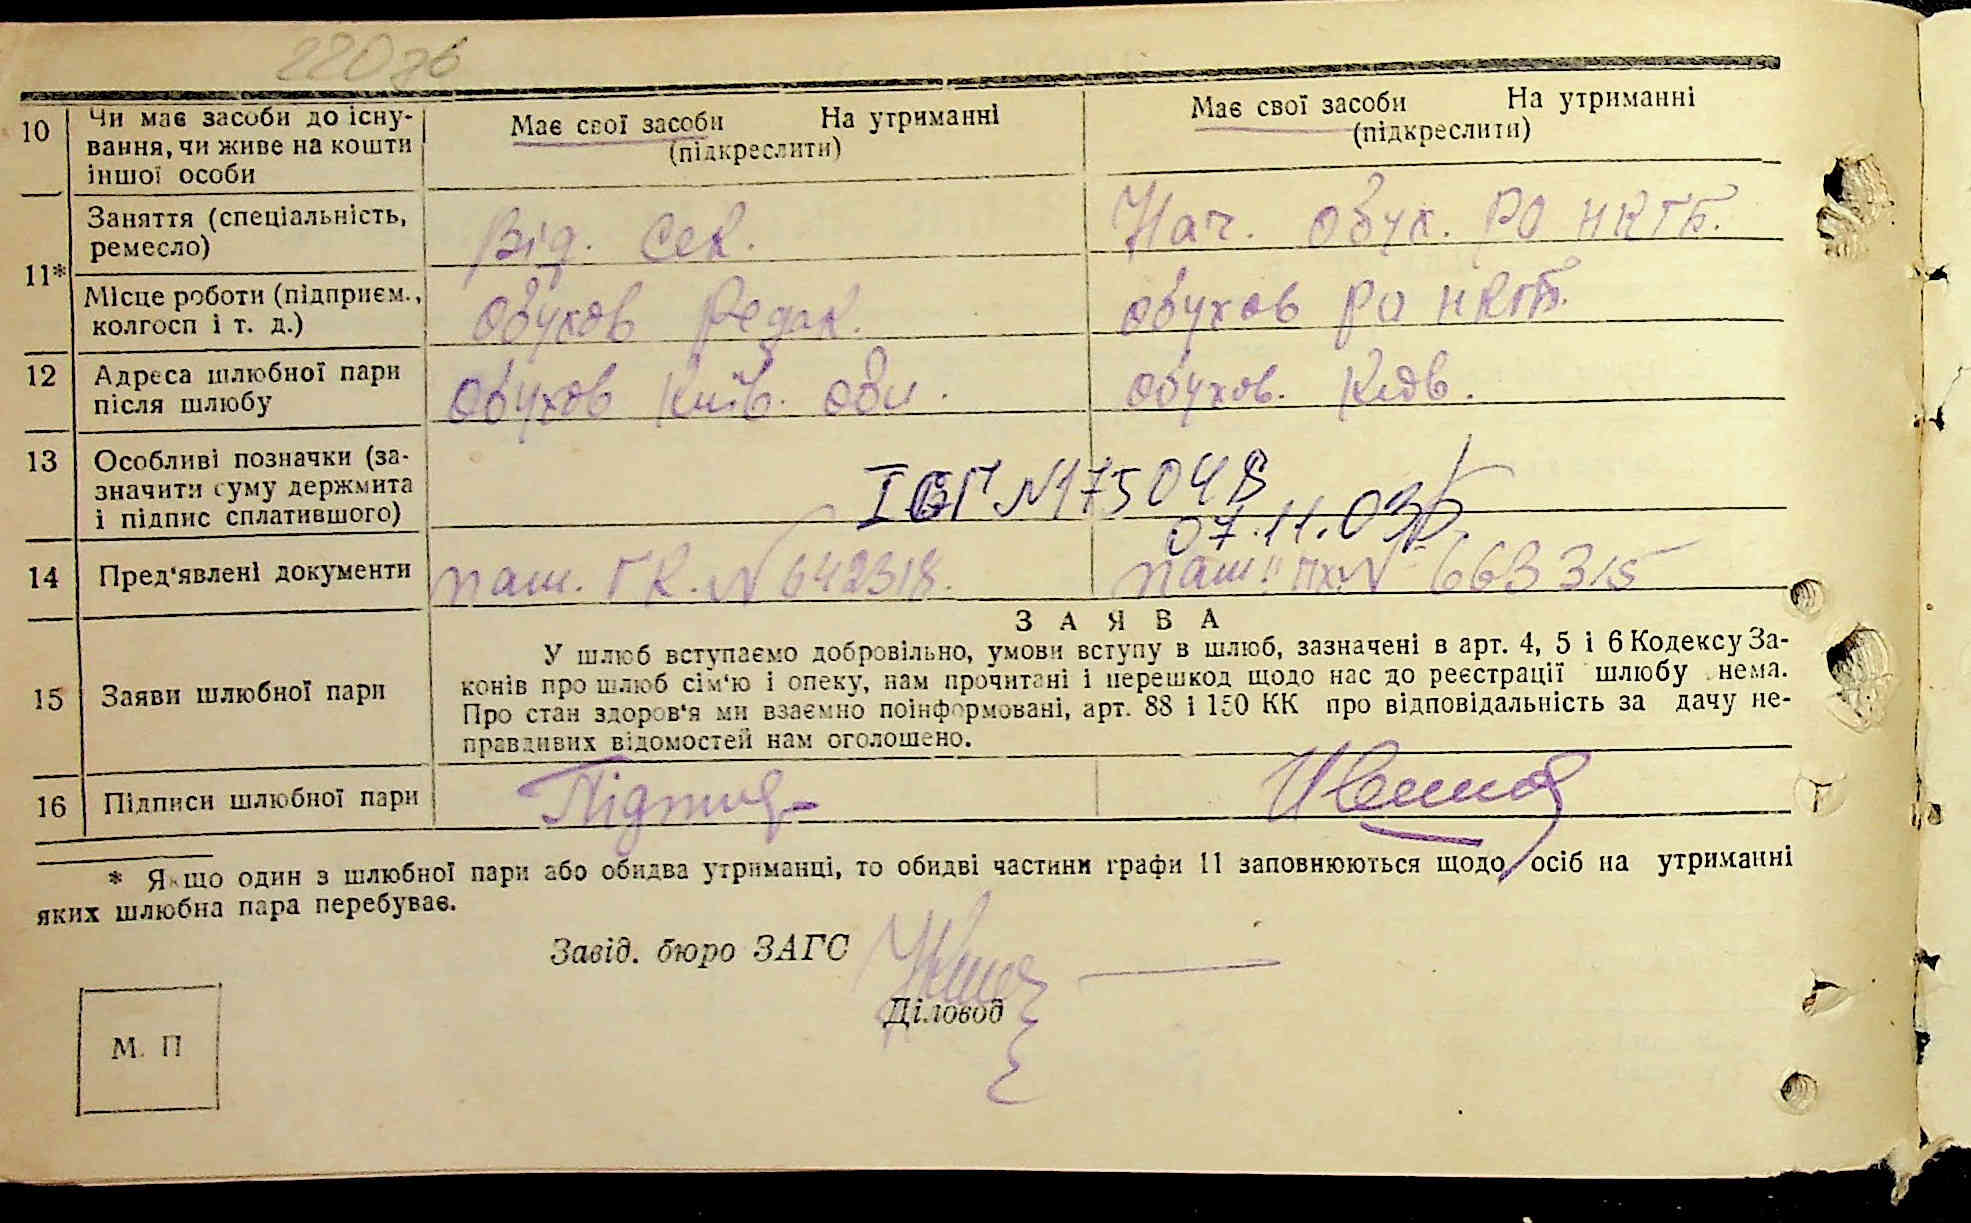 220зв
10 Чи має засоби до існування, чи живе на кошти іншої особи
Має свої засоби На утриманні
(підкреслити)
Має свої засоби На утриманні
(підкреслити)
11* Заняття (спеціальність, ремесло)
Від. Сек.
Нач. Обух. РО НКГБ.
Місце роботи (підприєм., колгосп і т. д.)
Обухов Редак.
Обухов РО НКГБ.
12 Адреса шлюбної пари після шлюбу
Обухов Київ. Обл.
Обухов. Київ.
13 Особливі позначки (зазначити суму держмита і підпис сплатившого)
І БГ №175048
07.11.03
14 Пред'явлені документи
паш. ГК. № 642318.
паш. № 663315
15 Заяви шлюбної пари
ЗАЯВА
У шлюб вступаємо добровільно, умови вступу в шлюб, зазначені в арт. 4, 5 і 6 Кодексу За-
конів про шлюб сім'ю і опеку, нам прочитані і перешкод щодо нас до реєстрації шлюбу нема.
Про стан здоров'я ми взаємно поінформовані, арт. 88 і 150 КК про відповідальність за дачу не-
правдивих відомостей нам оголошено.
16 Підписи шлюбної пари
* Якщо один з шлюбної пари або обидва утриманці, то обидві частини графи 11 заповнюються щодо осіб на утриманні
яких шлюбна пара перебуває.
Завід. бюро ЗАГС
Діловод
М. П